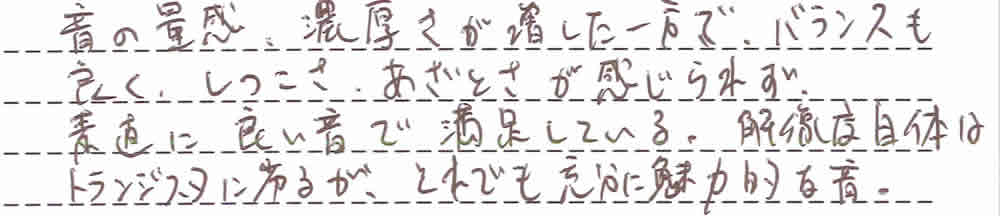 音の量感、濃厚さが増した一方で、バランスも
良く、しつこさ、あざとさが感じられず、
素直に良い音で満足している。解像度自体は
トランジスタに劣るが、それでも充分に魅力的な音。